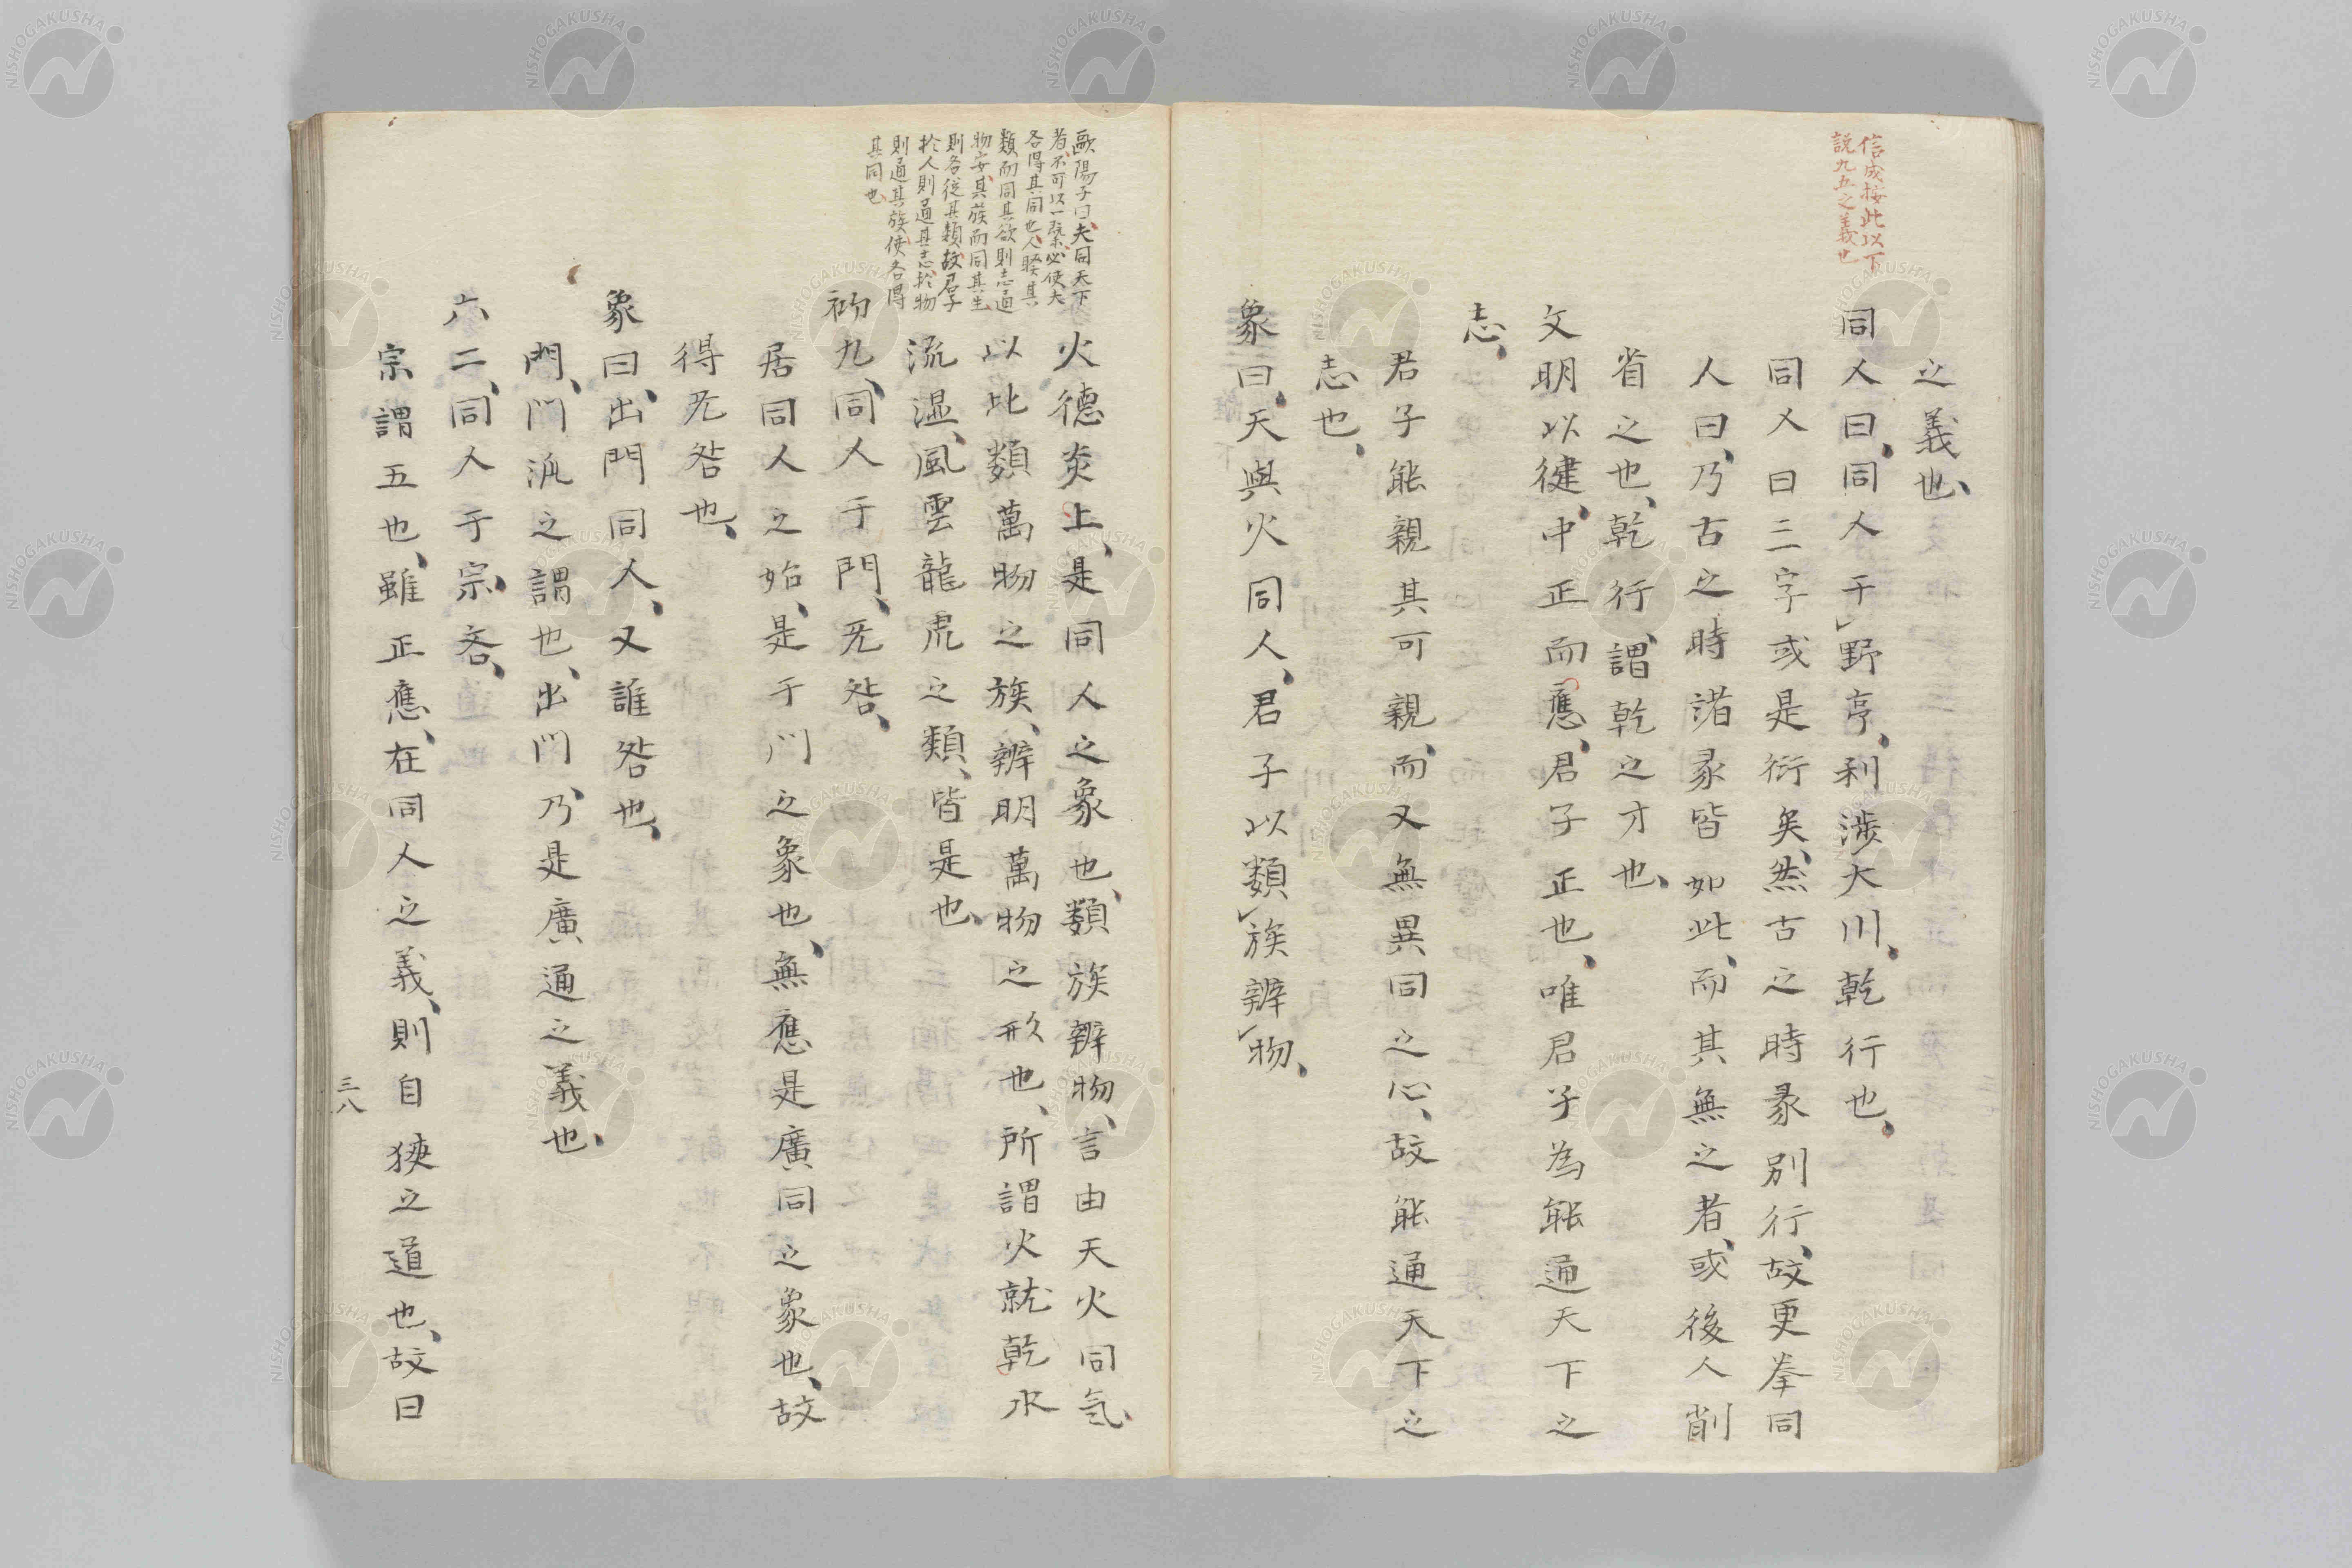 信成按此以下
説九五之義也
之義也、
同人曰、同人于野亨、利渉大川、乾行也、
同人曰三字或是衍矣、然古之時彖別行、故更拳同
人曰、乃古之時諸彖皆如此、而其無之者、或後人削
省之也、乾行、謂乾之才也、
文明以健、中正而應、君子正也、唯君子為能通天下之
志、
君子能親其可親、而又無異同之心、故能通天下之
志也、
象曰、天與火同人、君子以類族辨物、
歐陽子曰、夫同天下
者、不可以一槩、必使夫
各得其同也、人睽其
類而同其欲、則志通
物安其族而同其生
則各從其類、故君子
於人則通其志、於物
則通其族、使各得
其同也、
火德炎上、是同人之象也、類族辨物、言由天火同気、
以此類萬物之族、辨明萬物之形也、所謂火就乾水
流湿、風雲龍虎之類、皆是也、
初九、同人于門、无咎、
居同人之始、是于門之象也、無應是廣同之象也、故
得无咎也、
象曰、出門同人、又誰咎也、
門、門派之謂也、出門、乃是廣通之義也、
六二、同人于宗、吝、
宗謂五也、雖正應、在同人之義、則自狹之道也、故曰
三八